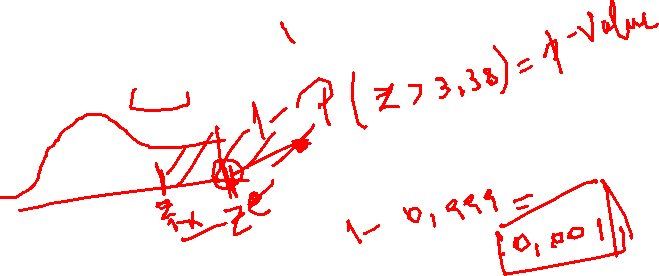 1 - P ( Z > 3,38 ) = p-value
Z 1-α Z
1 - 0,999 =
0,001